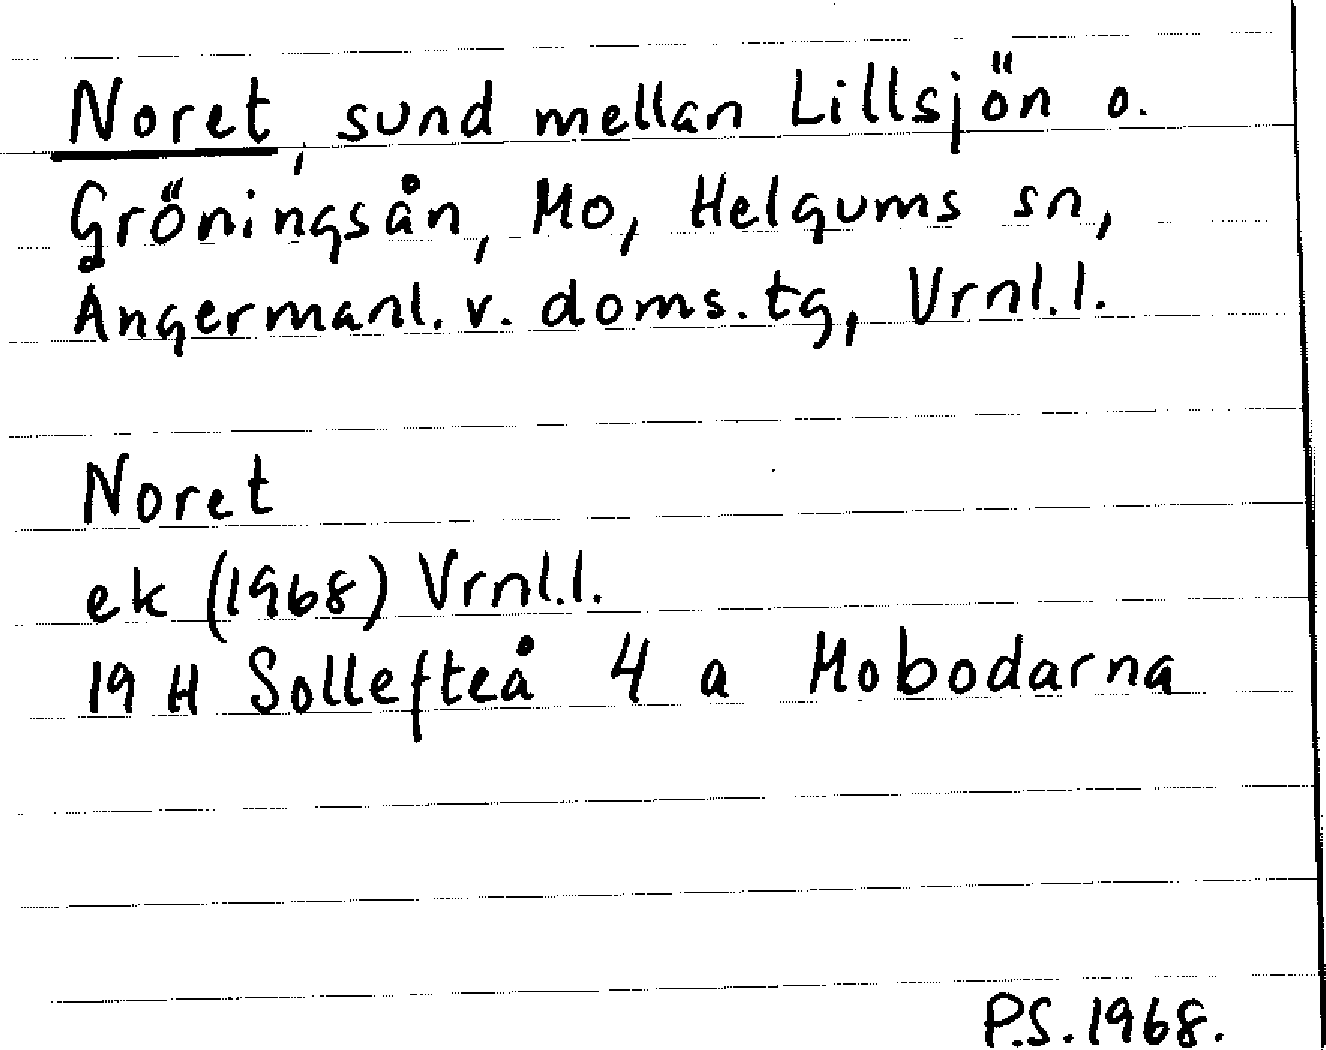 Noret, sund mellan Lillsjön o.
Gröningsån, Mo, Helgums sn,
Ångermanl. v. doms. tg, Vrnl.l.
Noret
ek (1968) Vrnl.l.
19 H Sollefteå 4 a Mobodarna
P.S. 1968.